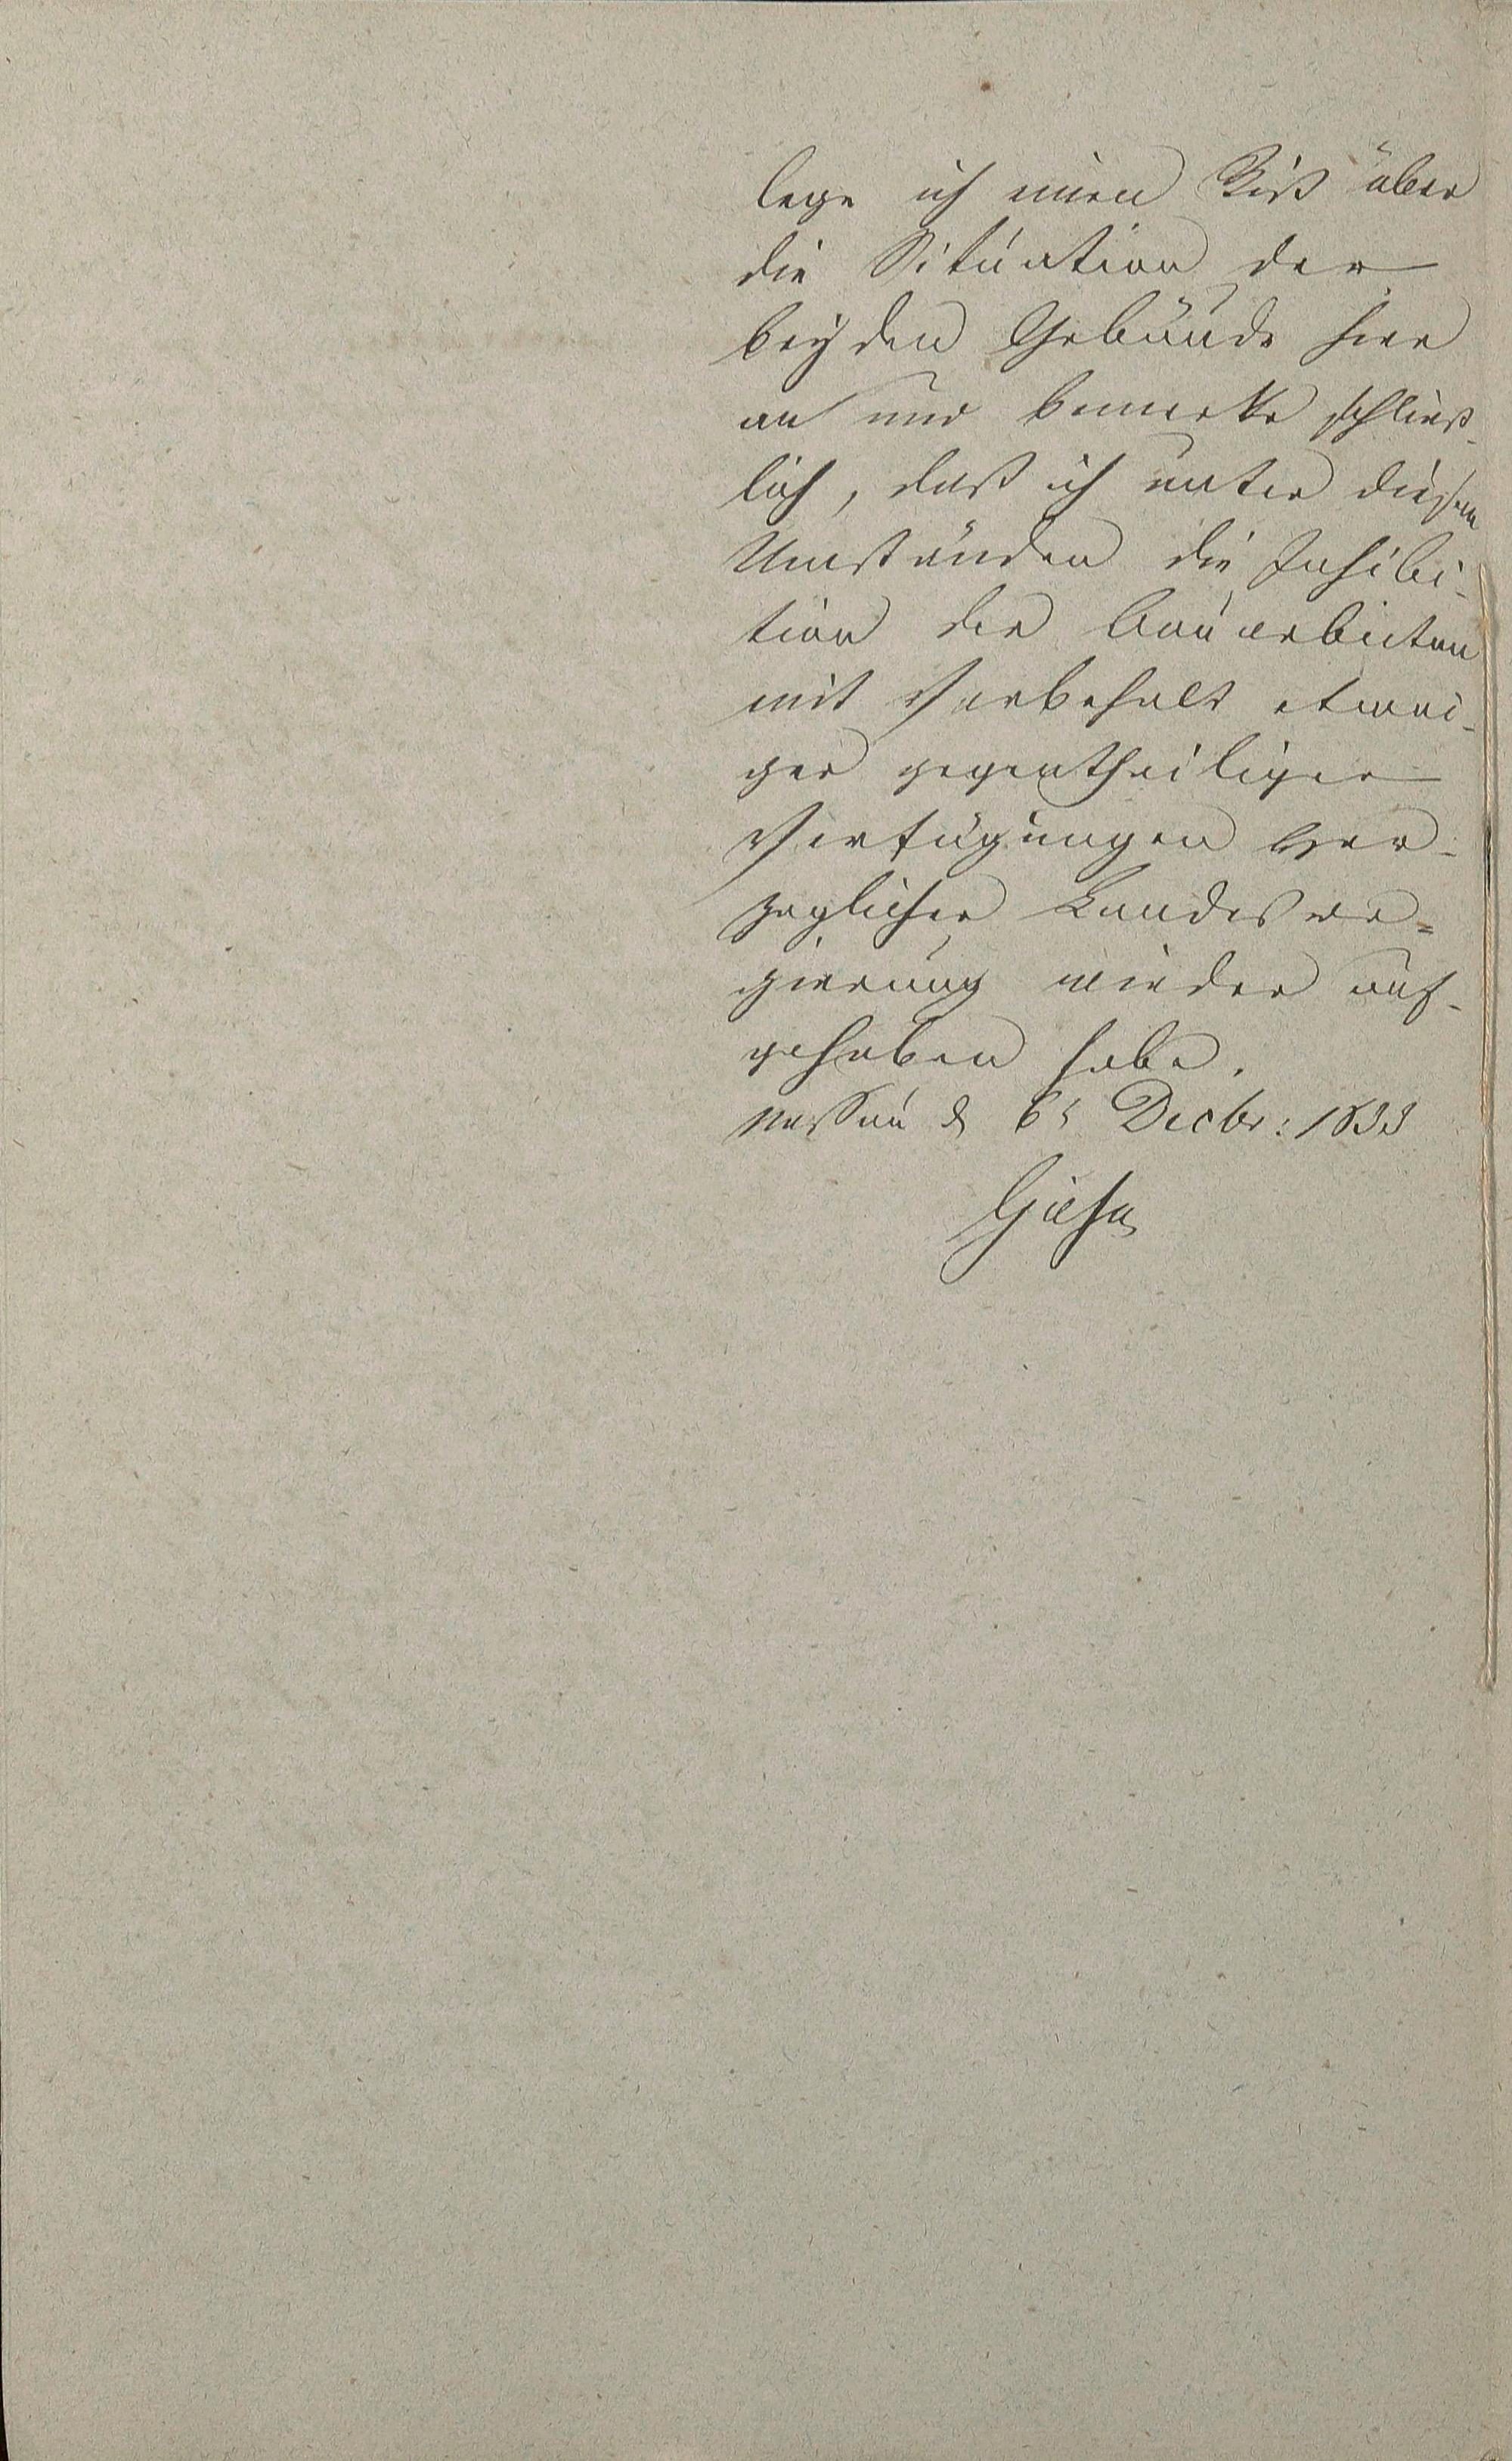 lege ich einen Riß über
die Situation der
beyden Gebäude hier
an und bemerke schließ-
lich, daß ich unter diesen
Umständen die Inhibi-
tion der Bauarbeiten
mit Vorbehalt etwai-
ger gegentheiliger
Verfügungen Her-
zoglicher Landesre=
gierung wieder auf-
gehoben habe.
Nassau d 6t Decbr: 1833
Giesse